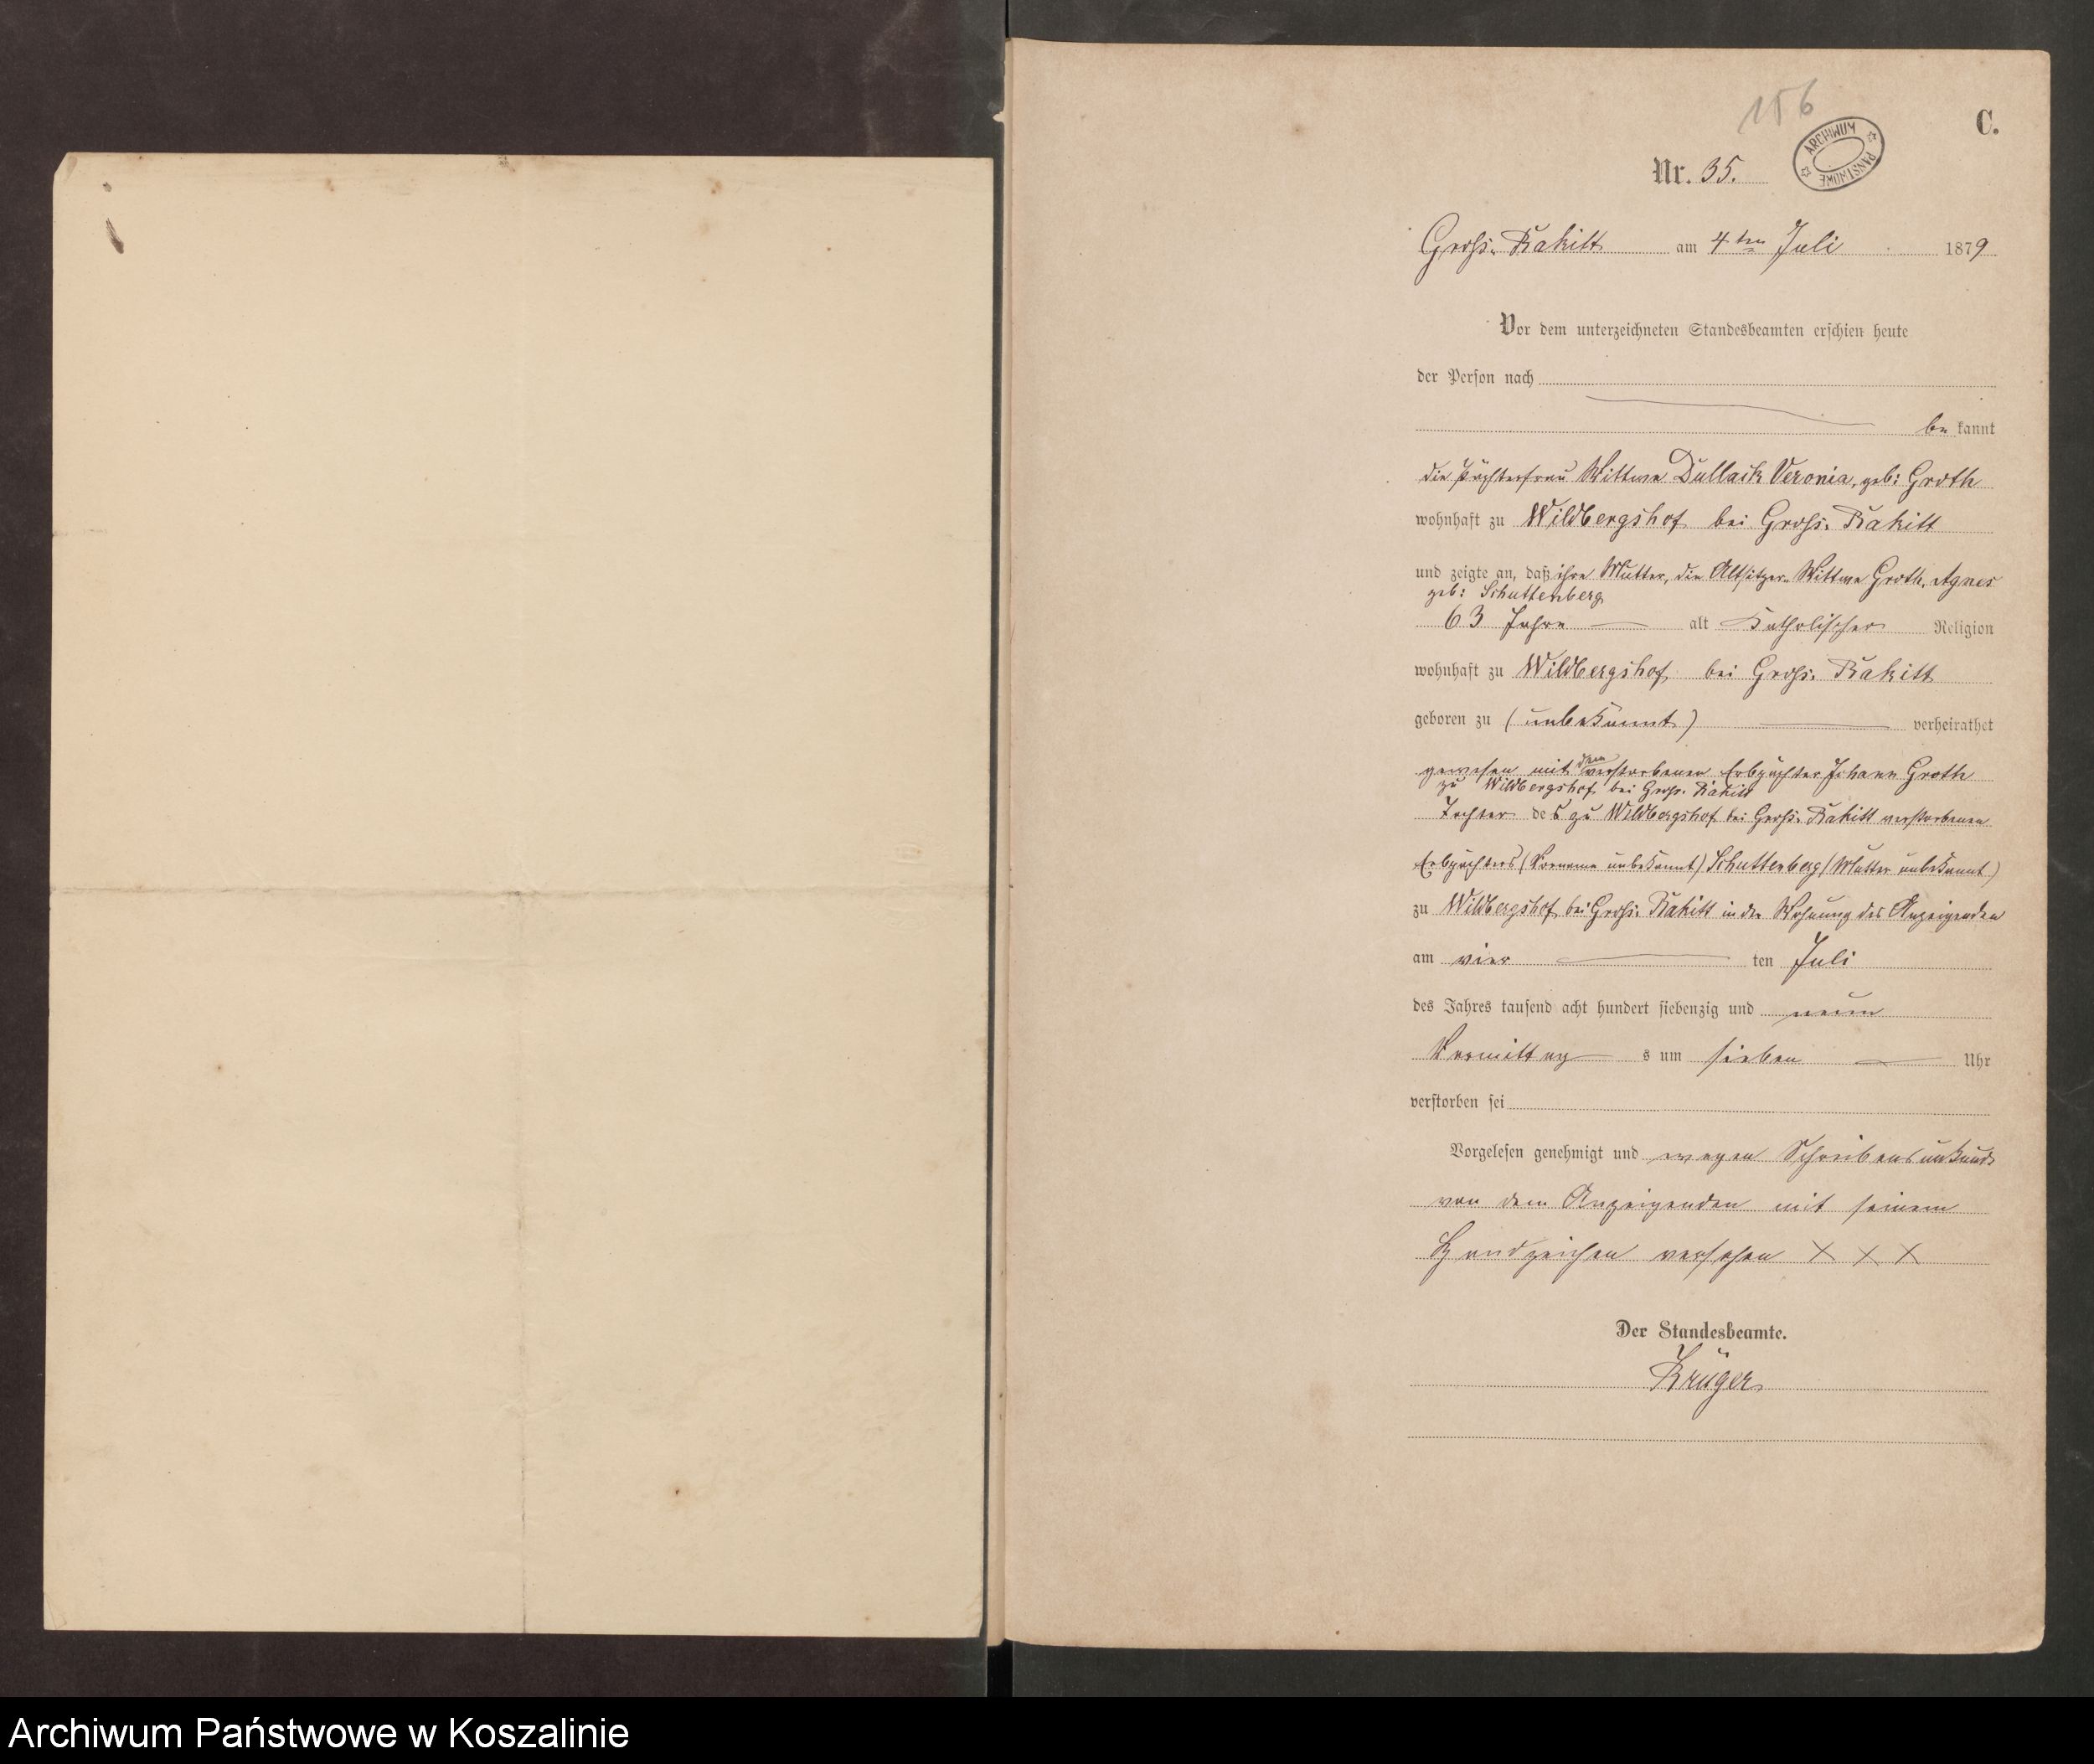 156
C.
ARCHIWUM PAŃSTWOWE
Nr. 35.
Groß-Rakitt am 4ten Juli 1879
Vor dem unterzeichneten Standesbeamten erschien heute
der Person nach
be kannt
die Pächterfrau Wittwe Dullack Veronia, geb: Groth
wohnhaft zu Wildbergshof bei Groß-Rakitt
und zeigte an, daß ihre Mutter, die Altsitzer-Wittwe Groth, Agnes
geb: Schuttenberg
63 Jahre alt Katholischer Religion
wohnhaft zu Wildbergshof bei Groß-Rakitt
geboren zu (unbekannt) verheirathet
gewesen mit dem verstorbenen Erbpächter Johann Groth
zu Wildbergshof bei Groß-Rakitt
Tochter des zu Wildbergshof bei Groß-Rakitt verstorbenen
Erbpächters (Vorname unbekannt) Schuttenberg (Mutter unbekannt)
zu Wildbergshof bei Groß-Rakitt in der Wohnung des Anzeigenden
am vier ten Juli
des Jahres tausend acht hundert siebenzig und neun
Vormittag s um sieben Uhr
verstorben sei
Vorgelesen genehmigt und wegen Schreibensunkunde
von dem Anzeigenden mit seinem
Handzeichen versehen X X X
Der Standesbeamte.
Krüger
Archiwum Państwowe w Koszalinie